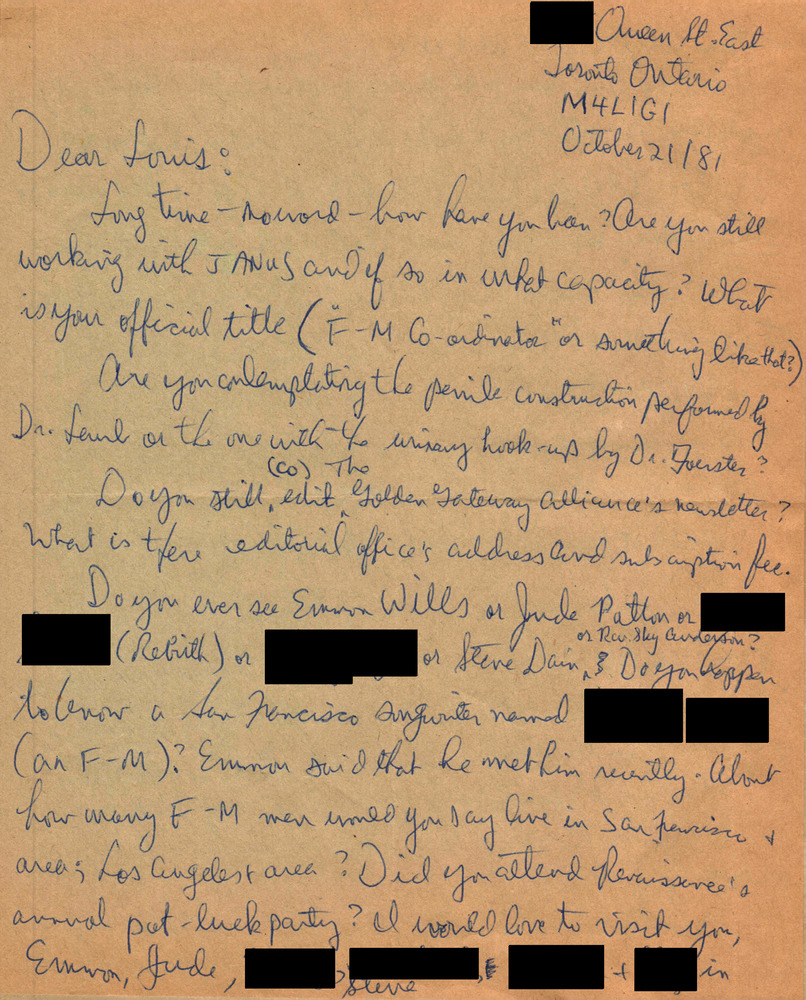 Queen St. East
Toronto Ontario
M4L1G1
October 21/81
Dear Louis:
Long time - no word - how have you been? Are you still
working with JANUS and if so in what capacity? What
is your official title ("F-M Co-ordinator" or something like that?)
Are you contemplating the penile construction performed by
Dr. Laub or the one with the urinary hook-up by Dr. Foerster?
(co) The
Do you still, edit, Golden Gateway Alliance's newsletter?
What is there editorial office's address and subscription fee.
Do you ever see Emmon Wills or Jude Patton or
or Rev. Sky Anderson?
(Rebirth) or or Steve Dain, & Do you happen
to know a San Francisco songwriter named
(an F-M)? Emmon said that he met him recently. About
how many F-M men would you say live in San Francisco +
area; Los Angeles + area? Did you attend Renaissance's
annual pot-luck party? I would love to visit you,
Emmon, Jude, Steve & + in